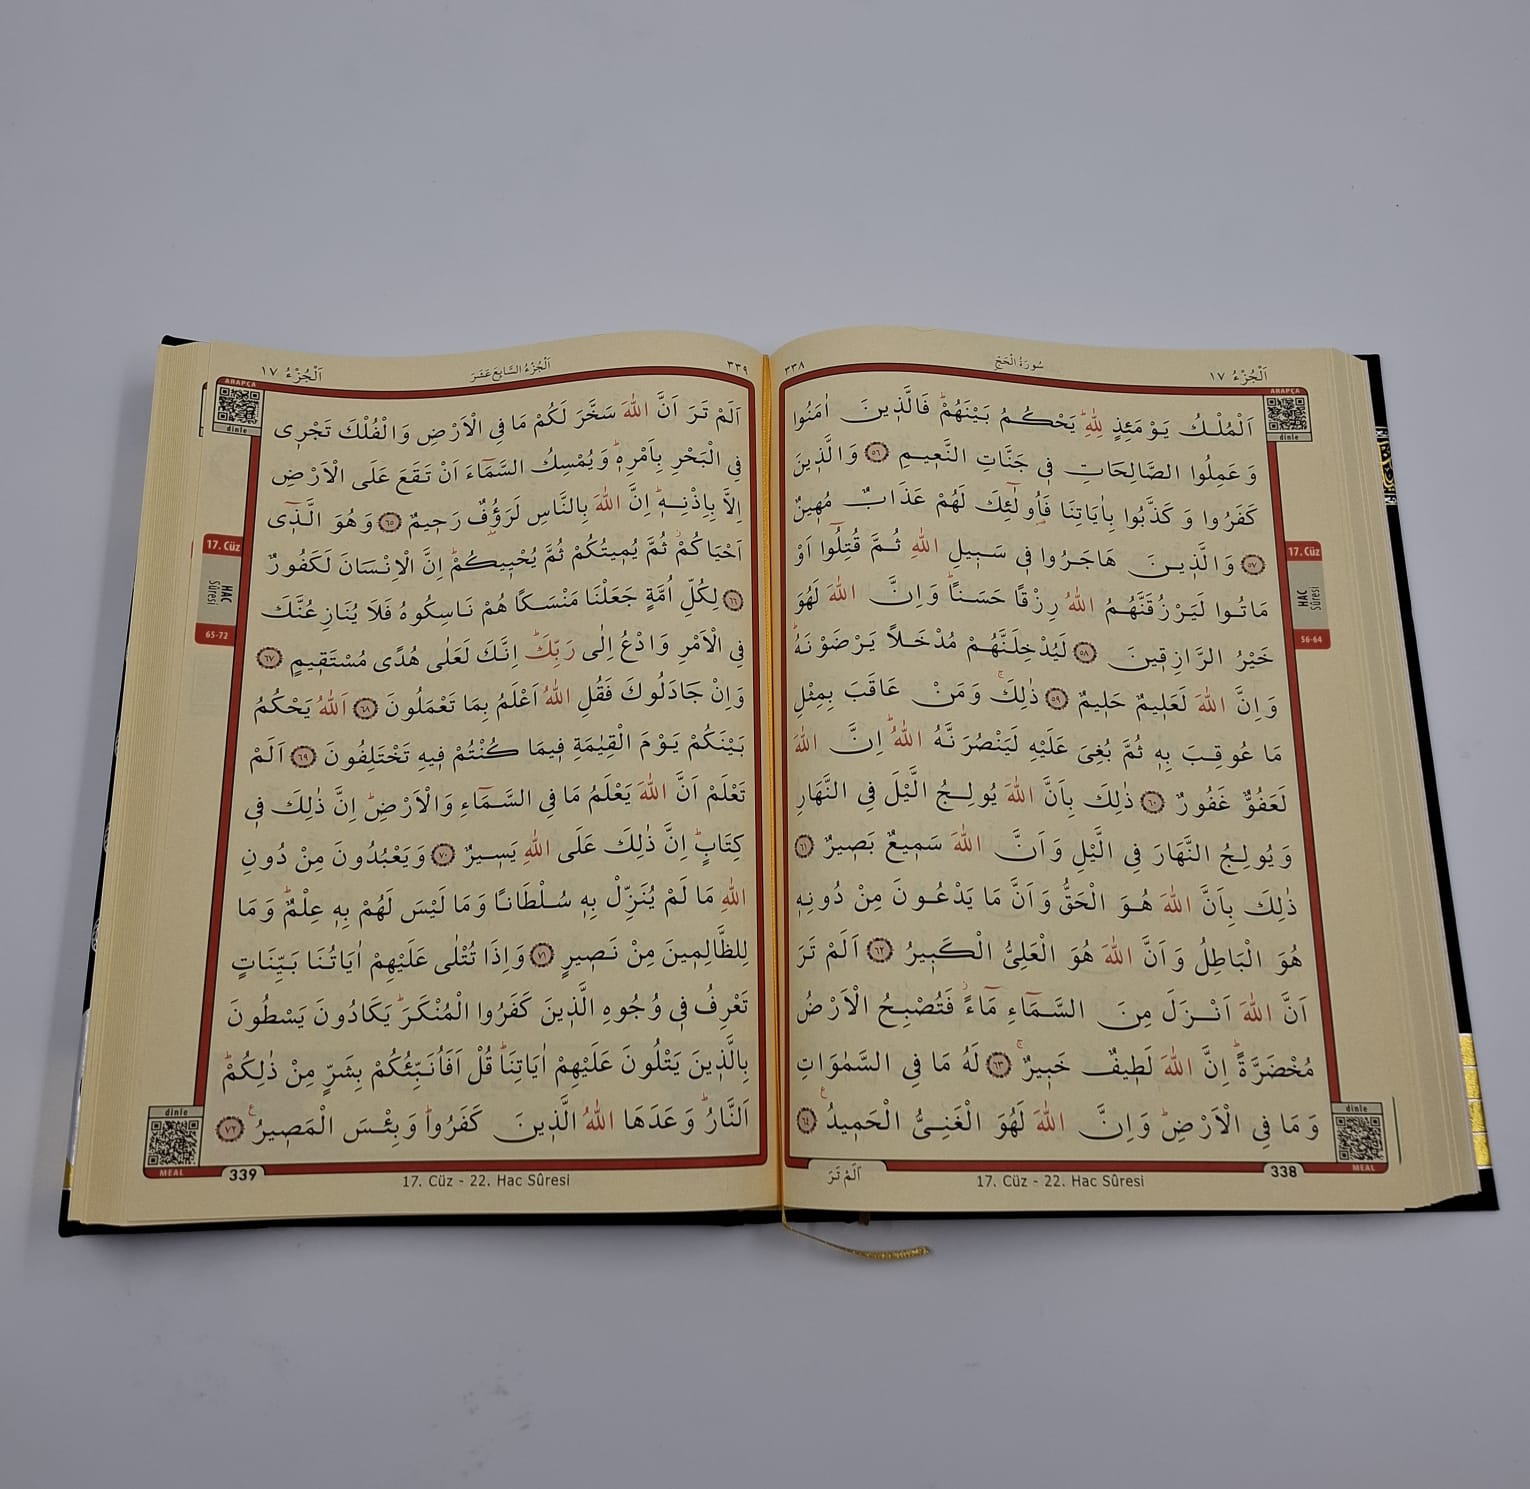 اَلْجُزْءُ ١٧
سُورَةُ الْحَجِّ
٣٣٨
ARAPÇA
dinle
اَلْمُلْكُ يَوْمَئِذٍ لِلّٰهِۜ يَحْكُمُ بَيْنَهُمْۜ فَالَّذ۪ينَ اٰمَنُوا
وَعَمِلُوا الصَّالِحَاتِ ف۪ي جَنَّاتِ النَّع۪يمِ ﴿٥٦﴾ وَالَّذ۪ينَ
كَفَرُوا وَكَذَّبُوا بِاٰيَاتِنَا فَاُو۬لٰٓئِكَ لَهُمْ عَذَابٌ مُه۪ينٌ
﴿٥٧﴾ وَالَّذ۪ينَ هَاجَرُوا ف۪ي سَب۪يلِ اللّٰهِ ثُمَّ قُتِلُٓوا اَوْ
مَاتُوا لَيَرْزُقَنَّهُمُ اللّٰهُ رِزْقًا حَسَنًاۜ وَاِنَّ اللّٰهَ لَهُوَ
خَيْرُ الرَّازِق۪ينَ ﴿٥٨﴾ لَيُدْخِلَنَّهُمْ مُدْخَلًا يَرْضَوْنَهُۜ
وَاِنَّ اللّٰهَ لَعَل۪يمٌ حَل۪يمٌ ﴿٥٩﴾ ذٰلِكَۚ وَمَنْ عَاقَبَ بِمِثْلِ
مَا عُوقِبَ بِه۪ ثُمَّ بُغِيَ عَلَيْهِ لَيَنْصُرَنَّهُ اللّٰهُۜ اِنَّ اللّٰهَ
لَعَفُوٌّ غَفُورٌ ﴿٦٠﴾ ذٰلِكَ بِاَنَّ اللّٰهَ يُولِجُ الَّيْلَ فِي النَّهَارِ
وَيُولِجُ النَّهَارَ فِي الَّيْلِ وَاَنَّ اللّٰهَ سَم۪يعٌ بَص۪يرٌ ﴿٦١﴾
ذٰلِكَ بِاَنَّ اللّٰهَ هُوَ الْحَقُّ وَاَنَّ مَا يَدْعُونَ مِنْ دُونِه۪
هُوَ الْبَاطِلُ وَاَنَّ اللّٰهَ هُوَ الْعَلِيُّ الْكَب۪يرُ ﴿٦٢﴾ اَلَمْ تَرَ
اَنَّ اللّٰهَ اَنْزَلَ مِنَ السَّمَٓاءِ مَٓاءًۘ فَتُصْبِحُ الْاَرْضُ
مُخْضَرَّةًۜ اِنَّ اللّٰهَ لَط۪يفٌ خَب۪يرٌۚ ﴿٦٣﴾ لَهُ مَا فِي السَّمٰوَاتِ
وَمَا فِي الْاَرْضِۜ وَاِنَّ اللّٰهَ لَهُوَ الْغَنِيُّ الْحَم۪يدُ۟ ﴿٦٤﴾
17. Cüz
HAC
Sûresi
56-64
dinle
MEAL
338
17. Cüz - 22. Hac Sûresi
اَلَمْ تَرَ
٣٣٩
اَلْجُزْءُ السَّابِعَ عَشَرَ
اَلْجُزْءُ ١٧
ARAPÇA
dinle
اَلَمْ تَرَ اَنَّ اللّٰهَ سَخَّرَ لَكُمْ مَا فِي الْاَرْضِ وَالْفُلْكَ تَجْر۪ي
فِي الْبَحْرِ بِاَمْرِه۪ۜ وَيُمْسِكُ السَّمَٓاءَ اَنْ تَقَعَ عَلَى الْاَرْضِ
اِلَّا بِاِذْنِه۪ۜ اِنَّ اللّٰهَ بِالنَّاسِ لَرَؤُ۫فٌ رَح۪يمٌ ﴿٦٥﴾ وَهُوَ الَّذ۪ٓي
اَحْيَاكُمْۘ ثُمَّ يُم۪يتُكُمْ ثُمَّ يُحْي۪يكُمْۜ اِنَّ الْاِنْسَانَ لَكَفُورٌ
﴿٦٦﴾ لِكُلِّ اُمَّةٍ جَعَلْنَا مَنْسَكًا هُمْ نَاسِكُوهُ فَلَا يُنَازِعُنَّكَ
فِي الْاَمْرِ وَادْعُ اِلٰى رَبِّكَۜ اِنَّكَ لَعَلٰى هُدًى مُسْتَق۪يمٍ ﴿٦٧﴾
وَاِنْ جَادَلُوكَ فَقُلِ اللّٰهُ اَعْلَمُ بِمَا تَعْمَلُونَ ﴿٦٨﴾ اَللّٰهُ يَحْكُمُ
بَيْنَكُمْ يَوْمَ الْقِيٰمَةِ ف۪يمَا كُنْتُمْ ف۪يهِ تَخْتَلِفُونَ ﴿٦٩﴾ اَلَمْ
تَعْلَمْ اَنَّ اللّٰهَ يَعْلَمُ مَا فِي السَّمَٓاءِ وَالْاَرْضِۜ اِنَّ ذٰلِكَ ف۪ي
كِتَابٍۜ اِنَّ ذٰلِكَ عَلَى اللّٰهِ يَس۪يرٌ ﴿٧٠﴾ وَيَعْبُدُونَ مِنْ دُونِ
اللّٰهِ مَا لَمْ يُنَزِّلْ بِه۪ سُلْطَانًا وَمَا لَيْسَ لَهُمْ بِه۪ عِلْمٌۜ وَمَا
لِلظَّالِم۪ينَ مِنْ نَص۪يرٍ ﴿٧١﴾ وَاِذَا تُتْلٰى عَلَيْهِمْ اٰيَاتُنَا بَيِّنَاتٍ
تَعْرِفُ ف۪ي وُجُوهِ الَّذ۪ينَ كَفَرُوا الْمُنْكَرَۜ يَكَادُونَ يَسْطُونَ
بِالَّذ۪ينَ يَتْلُونَ عَلَيْهِمْ اٰيَاتِنَاۜ قُلْ اَفَاُنَبِّئُكُمْ بِشَرٍّ مِنْ ذٰلِكُمْۜ
اَلنَّارُۜ وَعَدَهَا اللّٰهُ الَّذ۪ينَ كَفَرُواۜ وَبِئْسَ الْمَص۪يرُ۟ ﴿٧٢﴾
17. Cüz
HAC
Sûresi
65-72
dinle
MEAL
339
17. Cüz - 22. Hac Sûresi